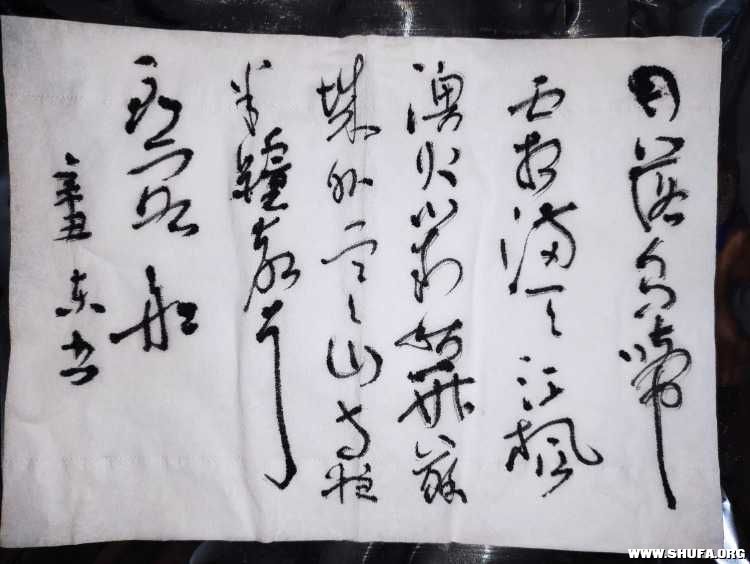 月落乌啼
霜满天江枫
渔火对姑苏
城外寒山寺夜
半鐘声
到客船
辛丑东书
WWW.SHUFA.ORG